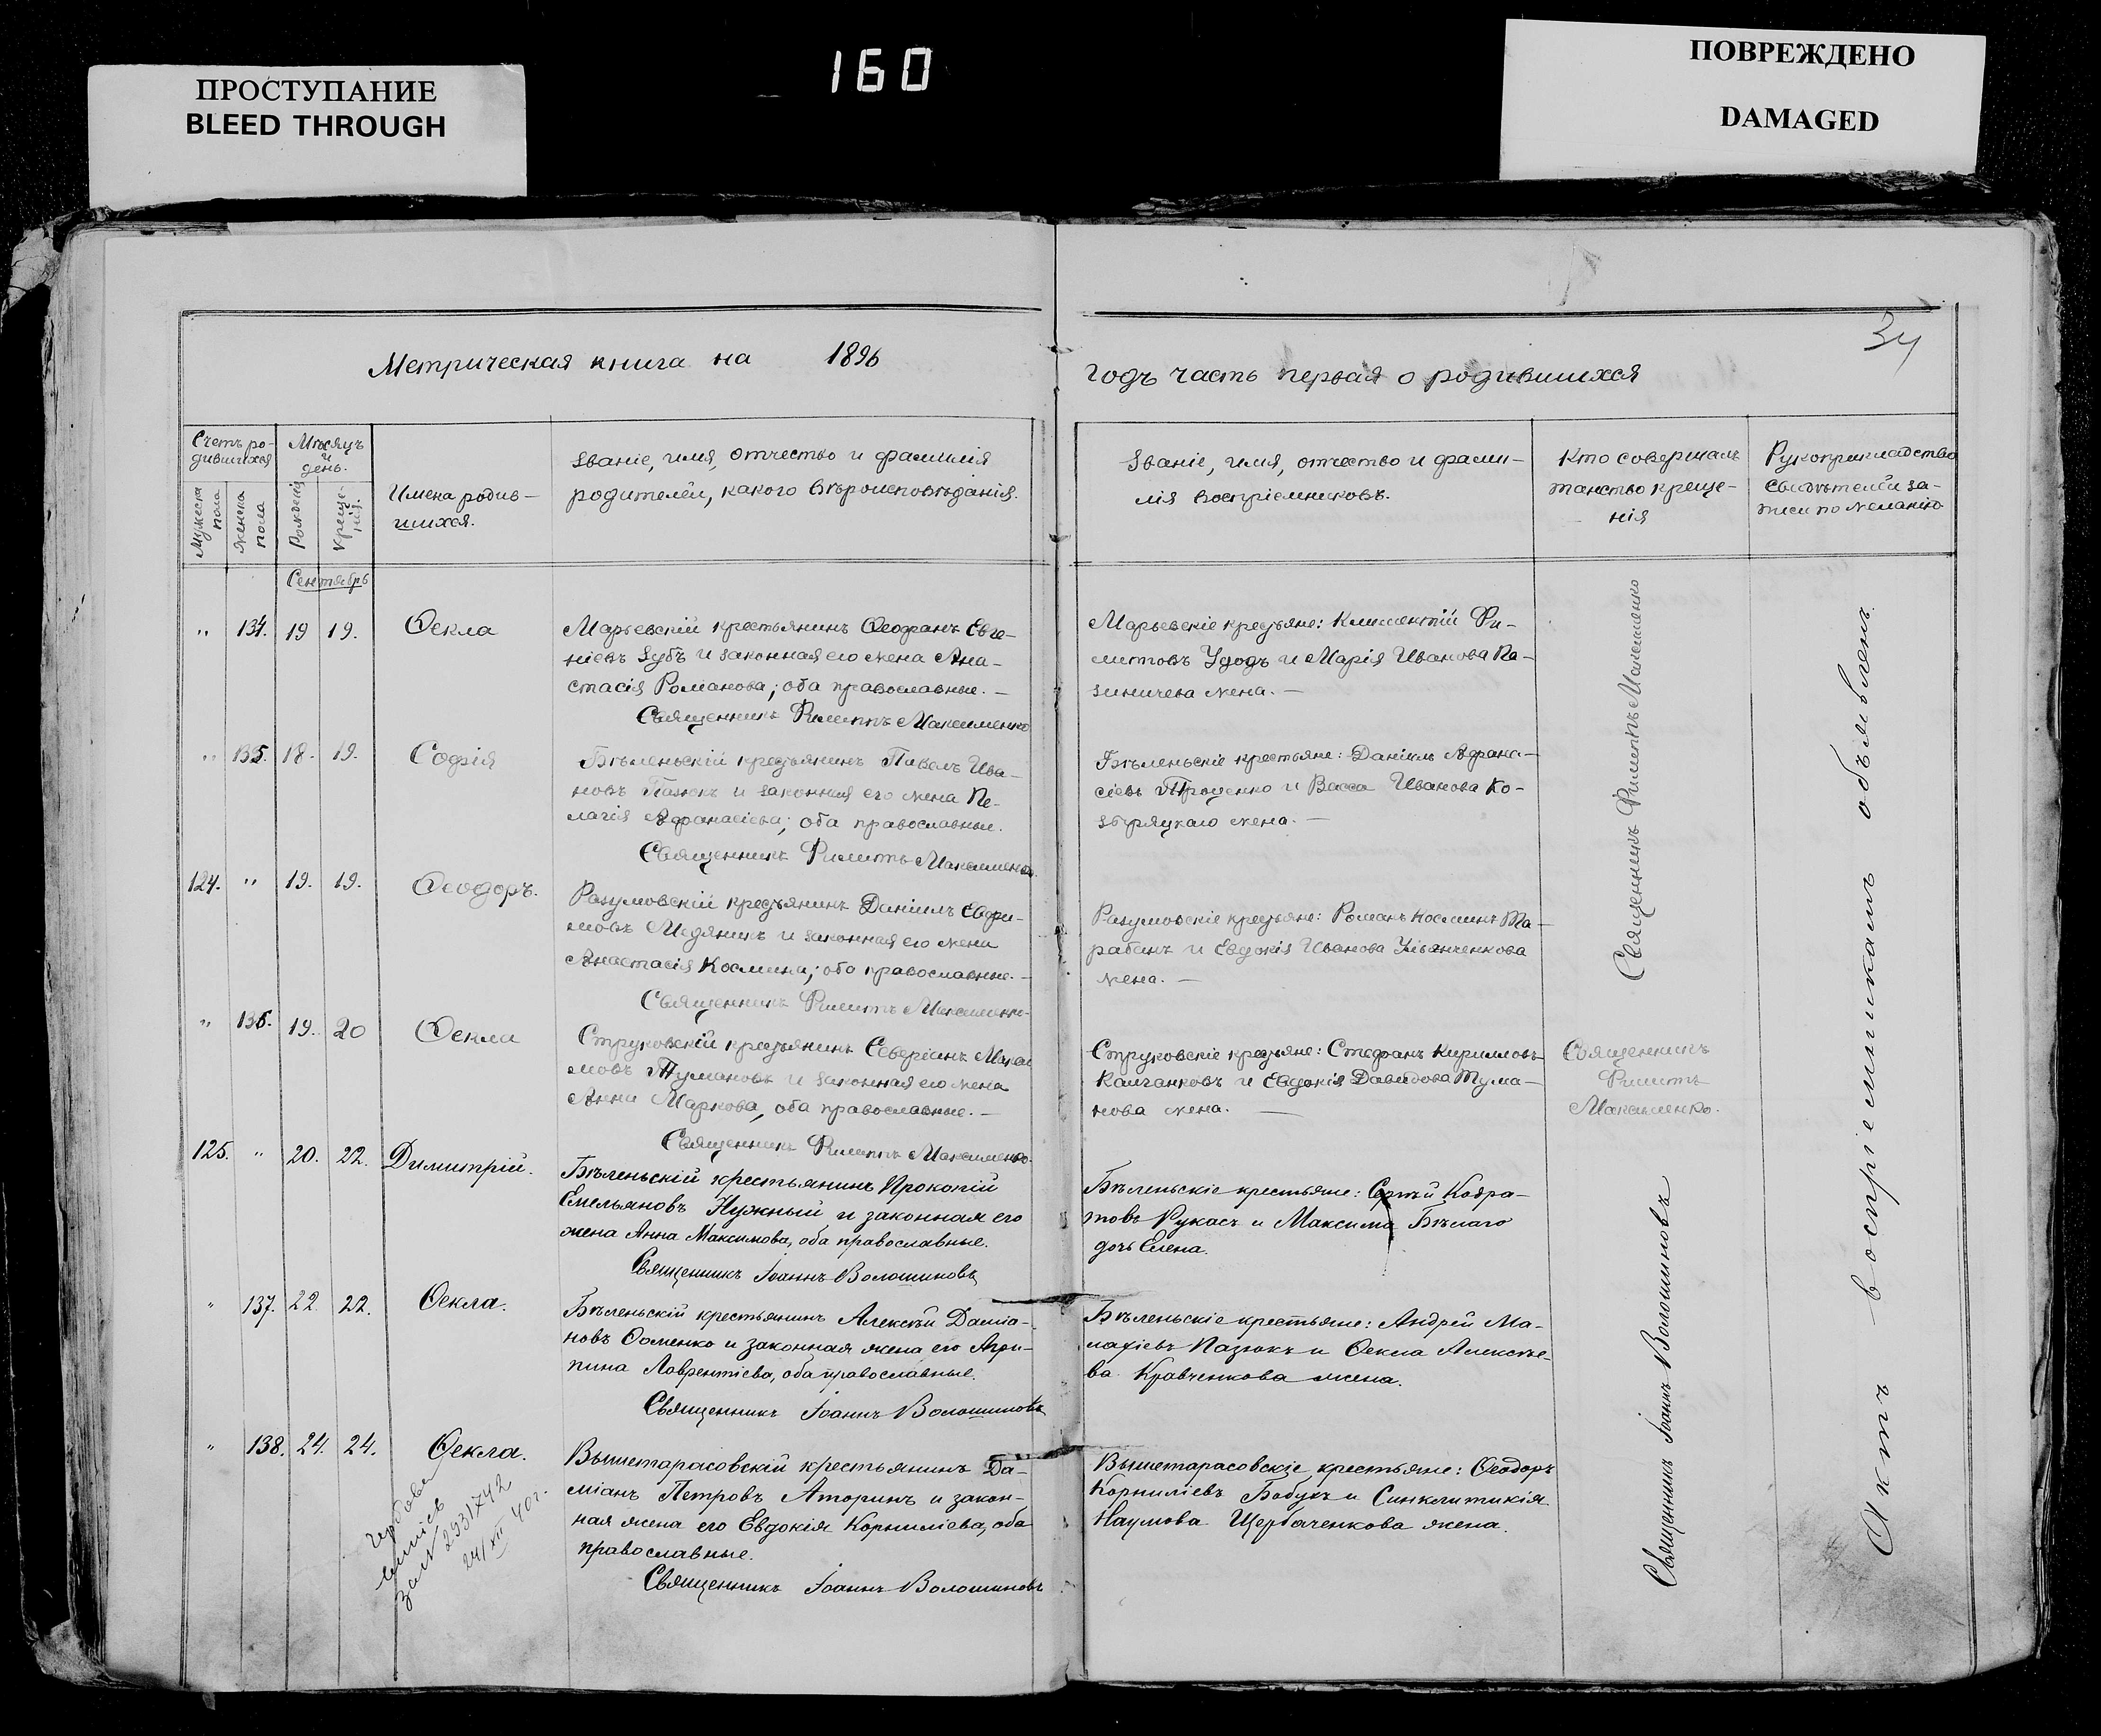 ПРОСТУПАНИЕ
BLEED THROUGH
160
ПОВРЕЖДЕНО
DAMAGED
34
Метрическая книга на 1896
годъ часть первая о родившихся
Счетъ ро-
дившихся
Мужеска
пола
Женска
пола
Мѣсяцъ
и
день.
Рожденія
Креще-
нія.
Имена родив-
шихся.
Званіе, имя, отчество и фамилія
родителей, какого вѣроисповѣданія.
Званіе, имя, отчество и фами-
лія воспріемниковъ.
Кто совершалъ
таинство креще-
нія
Рукоприкладство
свидѣтелей за-
писи по желанію
Сентябрь
" 134. 19 19. Ѳекла
Марьевскій крестьянинъ Ѳеофанъ Евге-
ніевъ Зубъ и законная его жена Ана-
стасія Романова; оба православные. —
Священникъ Филиппъ Максименко
Марьевскіе крестьяне: Климентій Фи-
липовъ Удодъ и Марія Иванова Па-
зиничева жена. —
" 135. 18. 19. Софія
Бѣленьскій крестьянинъ Павелъ Ива-
новъ Пазюкъ и законная его жена Пе-
лагія Афанасіева; оба православные.
Священникъ Филиппъ Максименко.
Бѣленьскіе крестьяне: Даніилъ Афана-
сіевъ Троценко и Васса Иванова Ко-
зыряцкаго жена. —
124. " 19. 19. Ѳеодоръ.
Разумовскій крестьянинъ Даніилъ Евфи-
мовъ Медяникъ и законная его жена
Анастасія Космина; оба православные. —
Священникъ Филиппъ Максименко.
Разумовскіе крестьяне: Романъ Косминъ Та-
рабанъ и Евдокія Иванова Ульянченкова
жена. —
Священникъ Филиппъ Максименко
" 136. 19. 20 Ѳекла
Струковскій крестьянинъ Северіанъ
Тумановъ и законная его жена
Анна Маркова, оба православные. —
Священникъ Филиппъ Максименко.
Струковскіе крестьяне: Стефанъ Кирилловъ
Калчанковъ и Евдокія Давидова Тума-
нова жена. —
Священникъ
Филиппъ
Максименко.
125. " 20. 22. Димитрій.
Бѣленьскій крестьянинъ Прокопій
Емельяновъ Нужный и законная его
жена Анна Максимова, оба православные.
Священникъ Іоаннъ Волошиновъ
Бѣленьскіе крестьяне: Сергѣй Кодра-
товъ Рукасъ и Максима Бѣлаго
дочь Елена.
" 137. 22. 22. Ѳекла.
Бѣленьскій крестьянинъ Алексѣй Даміа-
новъ Ѳоменко и законная жена его Агри-
пина Лаврентіева, оба православные.
Священникъ Іоаннъ Волошиновъ
Бѣленьскіе крестьяне: Андрей Ма-
лахіевъ Пазюкъ и Ѳекла Алексѣе-
ва Кравченкова жена.
" 138. 24. 24. Ѳекла.
Вышетарасовскій крестьянинъ Да-
міанъ Петровъ Аторинъ и закон-
ная жена его Евдокія Корниліева, оба
православные.
Священникъ Іоаннъ Волошиновъ
Вышетарасовскіе крестьяне: Ѳеодоръ
Корниліевъ Бабукъ и Синклитикія
Наумова Щербаченкова жена.
2931742
24/XII 40г.
Священникъ Іоаннъ Волошиновъ
Актъ воспріемникамъ объявленъ.